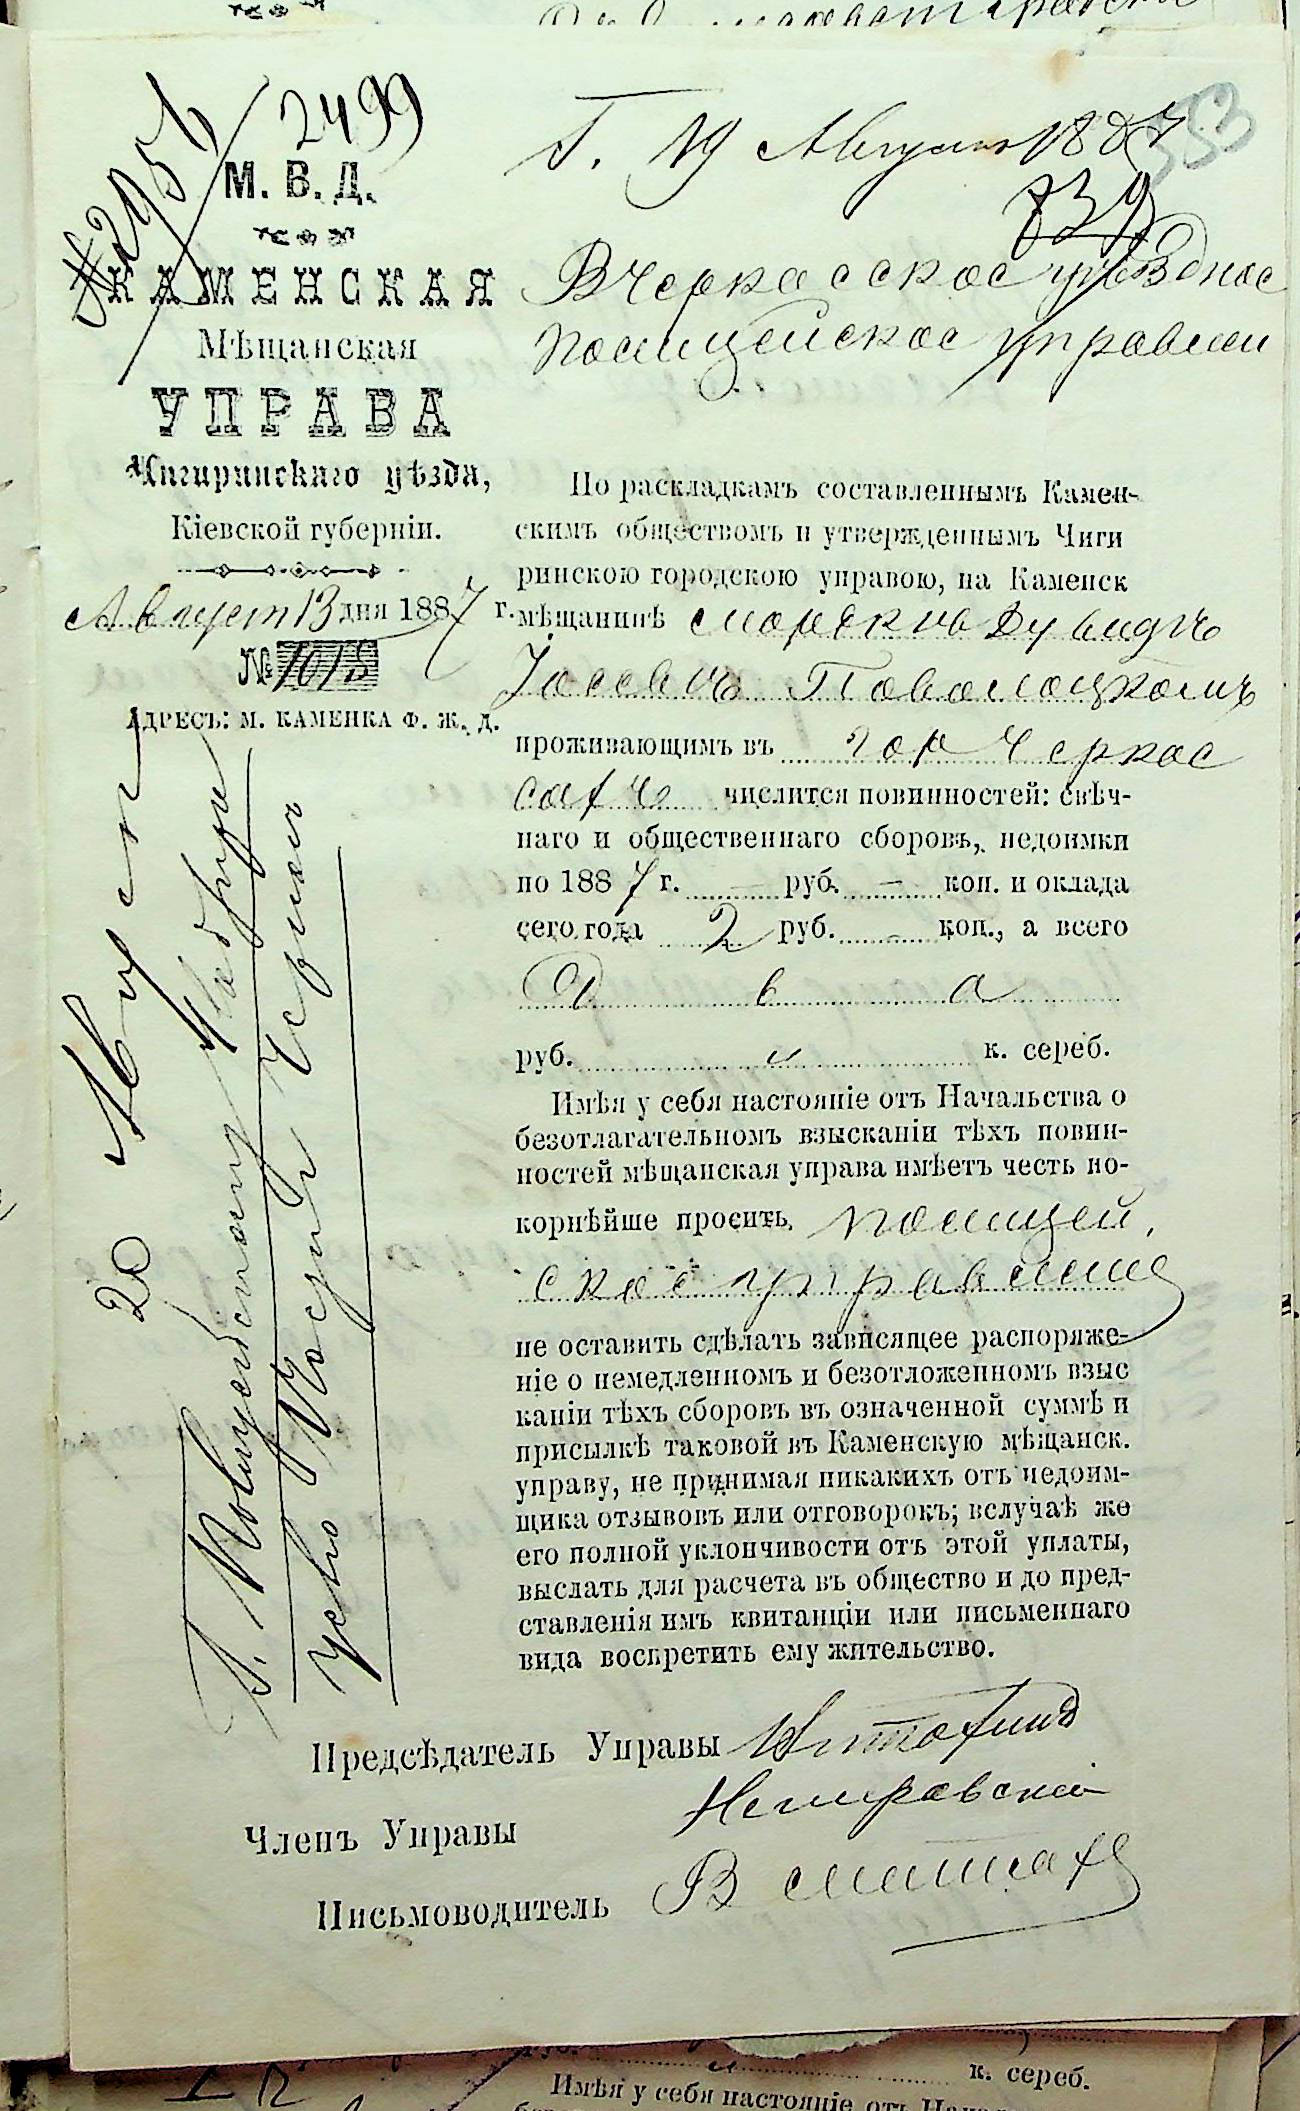 2499
№ 2956
М. В. Д.
КАМЕНСКАЯ
Мѣщанская
УПРАВА
Чигиринскаго уѣзда,
Кіевской губерніи.
Август 13 дня 1887 г.
№ 1018
АДРЕСЪ: М. КАМЕНКА Ф. Ж. Д.
553
Г. 19 Августа 1887
839
В Черкасское уѣздное
полицейское управлени
По раскладкамъ составленнымъ Камен-
скимъ обществомъ и утвержденнымъ Чиги
ринскою городскою управою, на Каменск
мѣщанинѣ Дувидъ
Іосевичъ Поволоцкомъ
проживающимъ въ гор Черкас
сахъ числится повинностей: свѣч-
наго и общественнаго сборовъ, недоимки
по 1887 г. — руб. — коп. и оклада
сего года 2 руб. - коп., а всего
Два
руб. и к. сереб.
Имѣя у себя настояніе отъ Начальства о
безотлагательномъ взысканіи тѣхъ повин-
ностей мѣщанская управа имѣетъ честь по-
корнѣйше просить полицей,
ское управление
не оставить сдѣлать зависящее распоряже-
ніе о немедленномъ и безотложенномъ взыс
каніи тѣхъ сборовъ въ означенной суммѣ и
присылкѣ таковой въ Каменскую мѣщанск.
управу, не принимая никакихъ отъ недоим-
щика отзывовъ или отговорокъ; вслучаѣ же
его полной уклончивости отъ этой уплаты,
выслать для расчета въ общество и до пред-
ставленія имъ квитанціи или письменнаго
вида воспретить ему жительство.
Предсѣдатель Управы
Членъ Управы Немировскій
Письмоводитель В
20 Авгус
Г. Полицейскому
к. сереб.
Имѣя у себя настояніе отъ